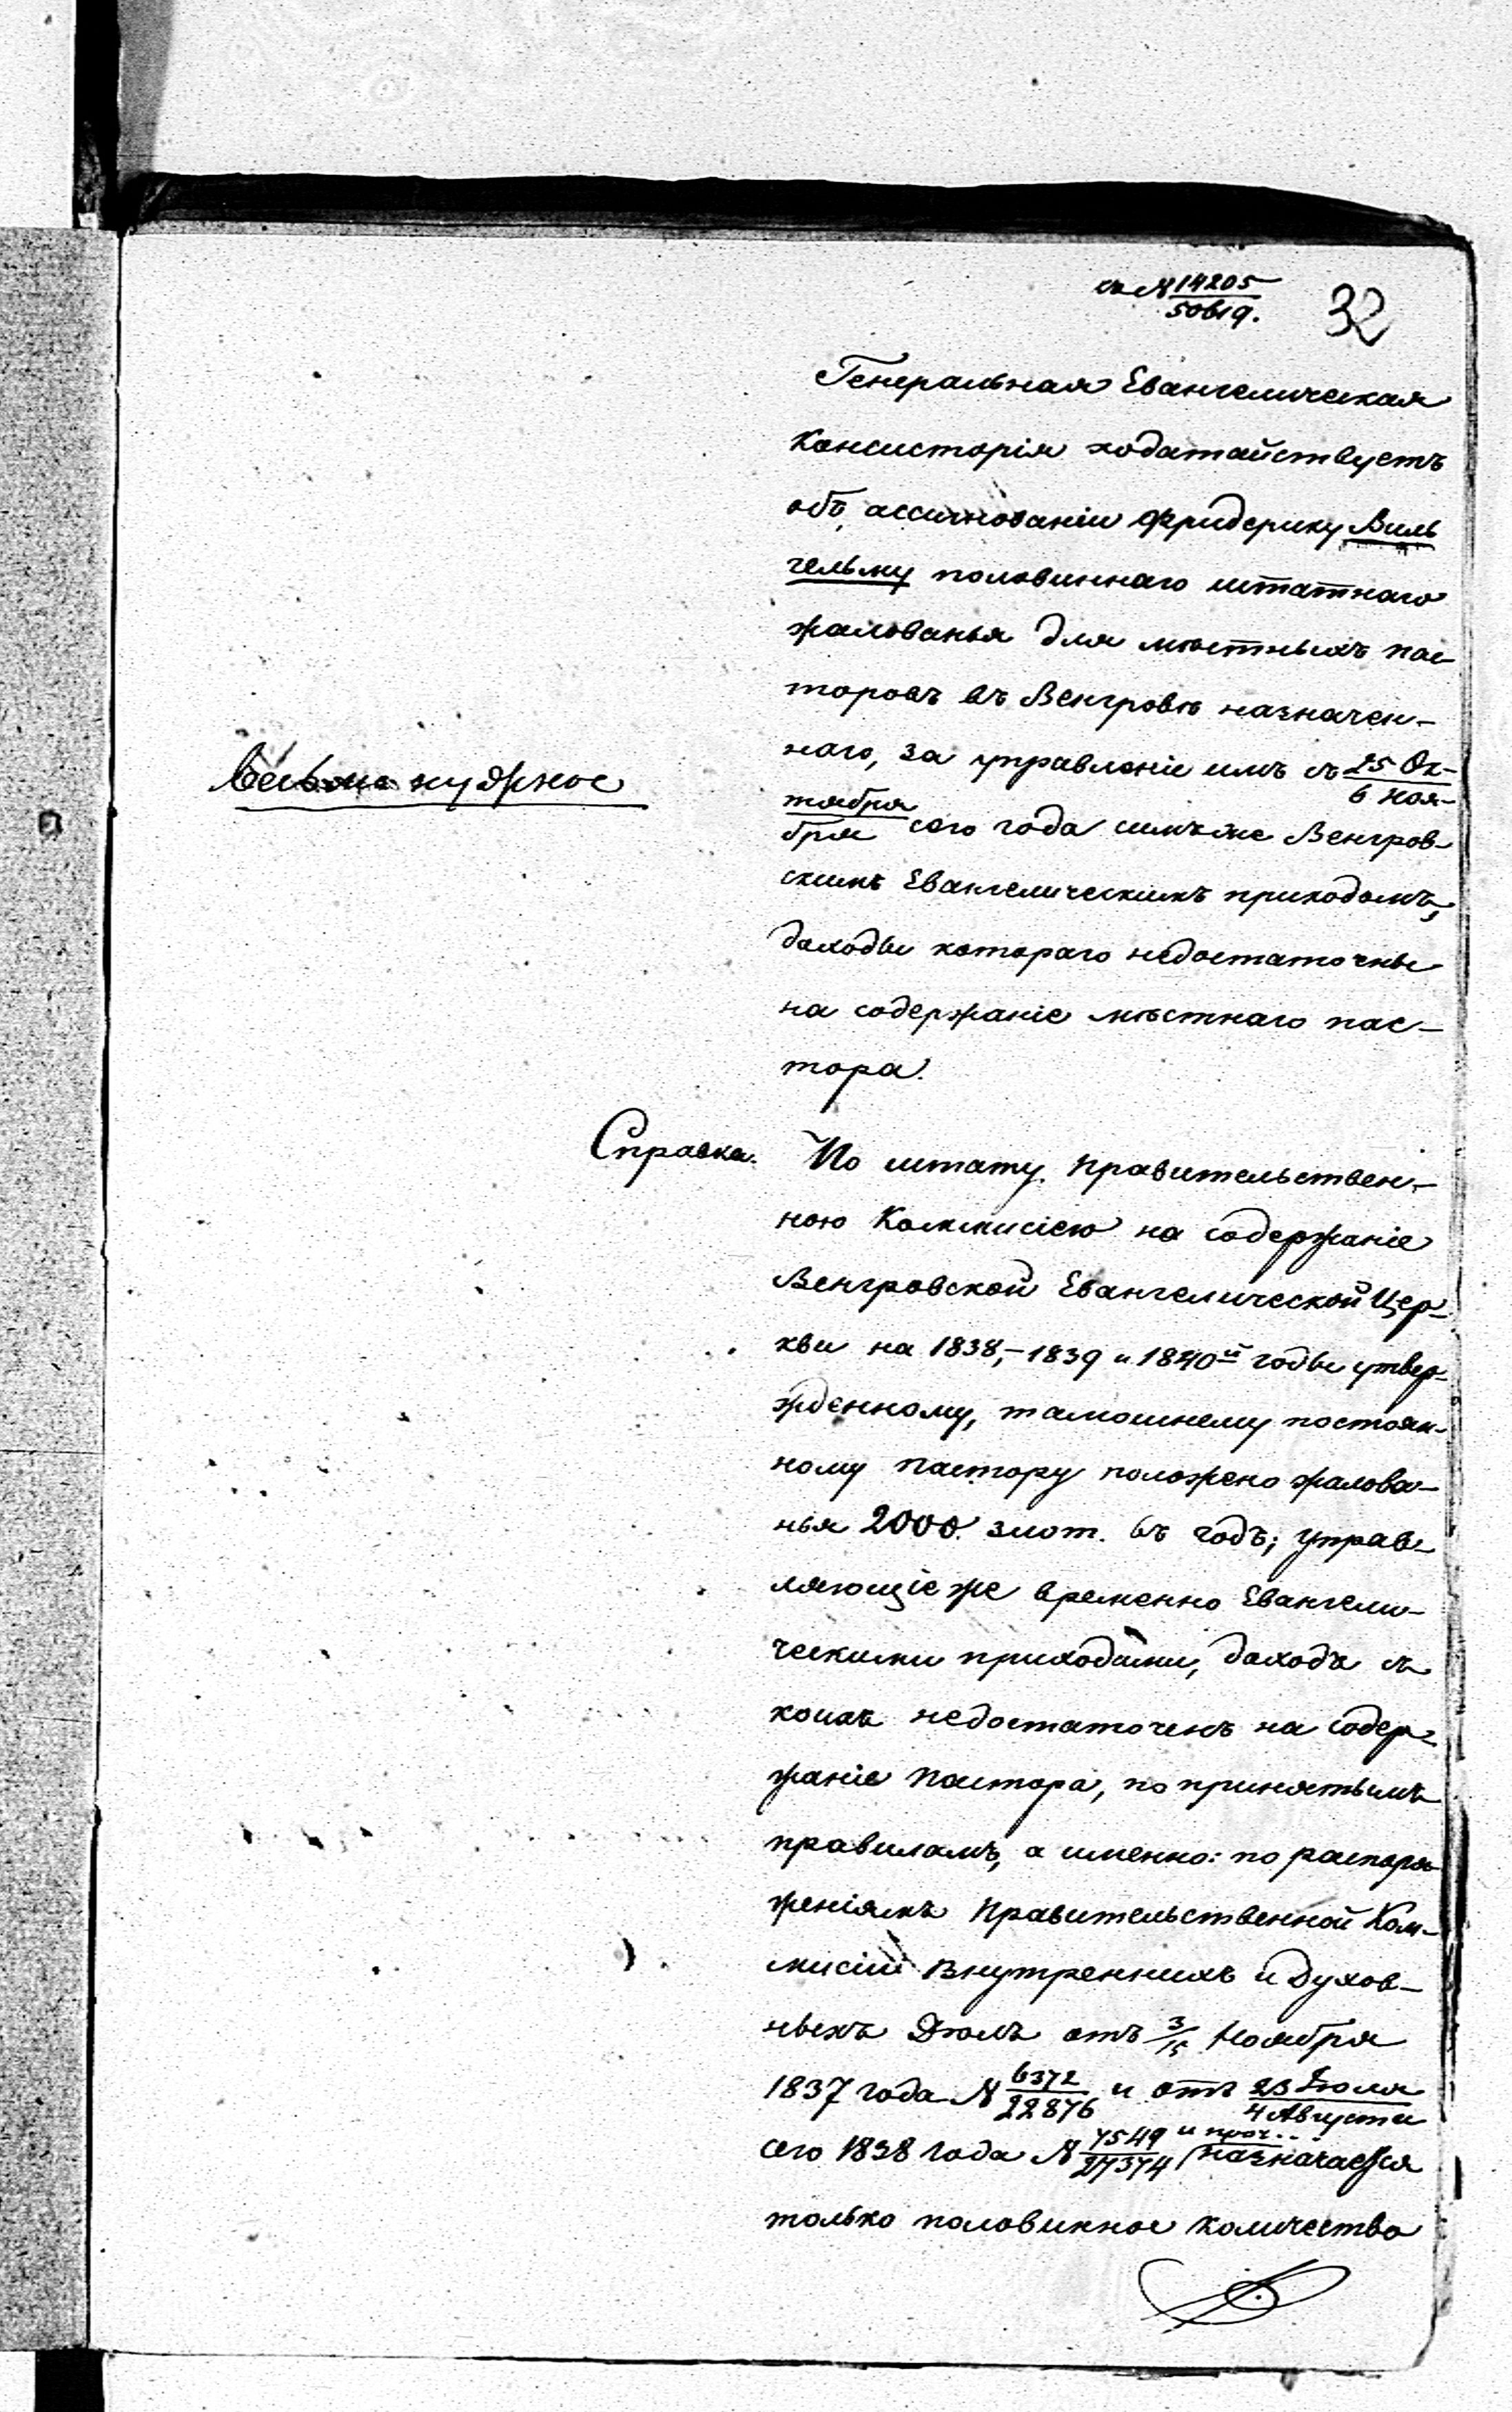 къ № 14205/50619. 32
Генеральная Евангелическая
Консисторія ходатайствуетъ
объ ассигнованіи Фридерику Виль
гельму половиннаго штатнаго
жалованья для мѣстныхъ пас-
торовъ въ Венгровѣ назначен-
наго, за управленіе имъ съ 25 Ок-/6 Ноя-
тября/бря сего года симъ же Венгров-
скимъ Евангелическимъ приходомъ,
доходы котораго недостаточны
на содержаніе мѣстнаго пас-
тора.
Весьма нужное
Справка. По штату Правительствен-
ною Коммисіею на содержаніе
Венгровской Евангелической Цер-
кви на 1838,- 1839 и 1840й годы утвер-
жденному, тамошнему постоян-
ному Пастору положено жалова-
нья 2000. злот. въ годъ; управ-
ляющіе же временно Евангели-
ческими приходами, доходъ съ
коихъ недостаточенъ на содер-
жаніе Пастора, по принятымъ
правиламъ, а именно: по распоря-
женіямъ Правительственной Ком-
мисіи Внутреннихъ и Духов-
ныхъ Дѣлъ отъ 3/15 Ноября
1837 года № 6372/22876 и отъ 23 Іюля/4 Августа
сего 1838 года № 7549/27374 и проч... назначается
только половинное количество